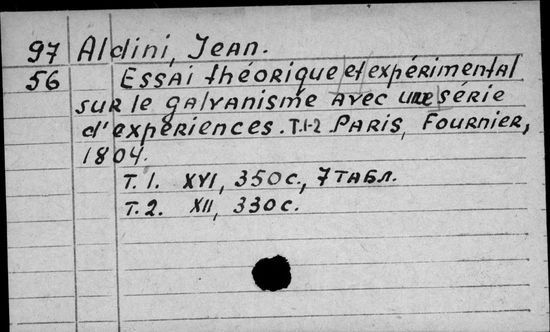 97 Aldini, Jean.
56 Essai théorique et expérimental
sur le galvanisme avec une série
d'expériences. T.1-2 Paris, Fournier,
1804.
T. 1. XVI, 350 с., 7 табл.
T. 2. XII, 330 с.